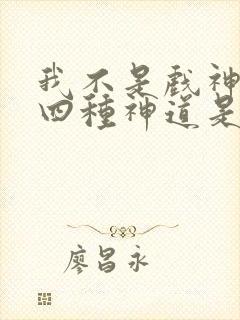 我不是戲神
四種神道是
廖昌永